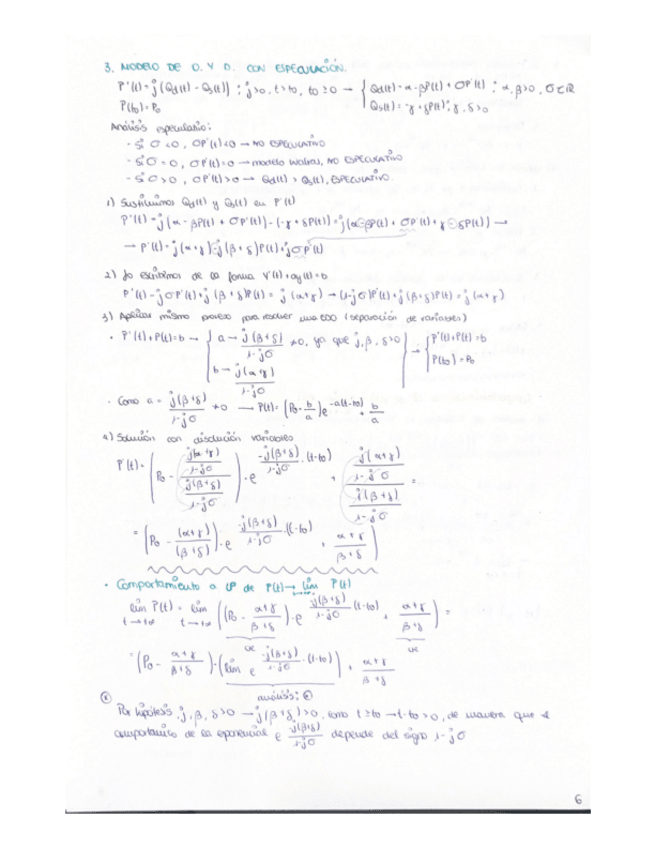 3. MODELO DE O. Y D. CON ESPECULACIÓN.
P'(t) = j (Qd(t) - Qs(t)) ; j>0, t>t0, t0 ≥ 0 → { Qd(t) = α - βP(t) + σP'(t) ; α, β>0, σ∈ℝ
P(t0) = P0 { Qs(t) = -γ + δP(t); γ, δ>0
Análisis especulario:
- Si σ <0, σP'(t)<0 → NO ESPECULATIVO
- Si σ = 0, σP'(t)=0 → modelo Walras, NO ESPECULATIVO
- Si σ > 0, σP'(t)>0 → Qd(t) > Qs(t), ESPECULATIVO.
1) Sustituimos Qd(t) y Qs(t) en P'(t)
P'(t) = j (α - βP(t) + σP'(t)) - (-γ + δP(t)) = j (α - βP(t) + σP'(t) + γ - δP(t)) →
→ P'(t) = j (α+γ) - j (β + δ)P(t) + jσP'(t)
2) Lo escribimos de la forma Y'(t) + ay(t) = b
P'(t) - jσP'(t) + j (β + δ)P(t) = j (α+γ) → (1-jσ)P'(t) + j (β+δ)P(t) = j (α+γ)
3) Aplicar mismo proceso para resolver una EDO (separación de variables)
· P'(t) + P(t) = b → { a → j(β+δ)/(1-jσ) ≠0, ya que j, β, δ>0 } → { P'(t) + P(t) = b
{ b → j(α+γ)/(1-jσ) } { P(t0) = P0
· Como a = j(β+δ)/(1-jσ) ≠0 → P(t) = (P0 - b/a) e^(-a(t-t0)) + b/a
4) Solución con disolución variables
P'(t) = (P0 - (j(α+γ)/(1-jσ))/(j(β+δ)/(1-jσ))) · e^(-j(β+δ)/(1-jσ) · (t-t0)) + (j(α+γ)/(1-jσ))/(j(β+δ)/(1-jσ)) =
= (P0 - (α+γ)/(β+δ)) · e^(-j(β+δ)/(1-jσ) · (t-t0)) + (α+γ)/(β+δ)
· Comportamiento a LP de P(t) → lim t→∞ P(t)
lim t→+∞ P(t) = lim t→+∞ ((P0 - (α+γ)/(β+δ)) · e^(-j(β+δ)/(1-jσ) (t-t0)) + (α+γ)/(β+δ)) =
= (P0 - (α+γ)/(β+δ)) · (lim e^(-j(β+δ)/(1-jσ) · (t-t0))) + (α+γ)/(β+δ)
análisis:
Por hipótesis, j, β, δ >0 → j(β+δ)>0, como t≥t0 → t-t0 >0, de manera que el
comportamiento de la exponencial e^(-j(β+δ)/(1-jσ)) depende del signo 1-jσ
6